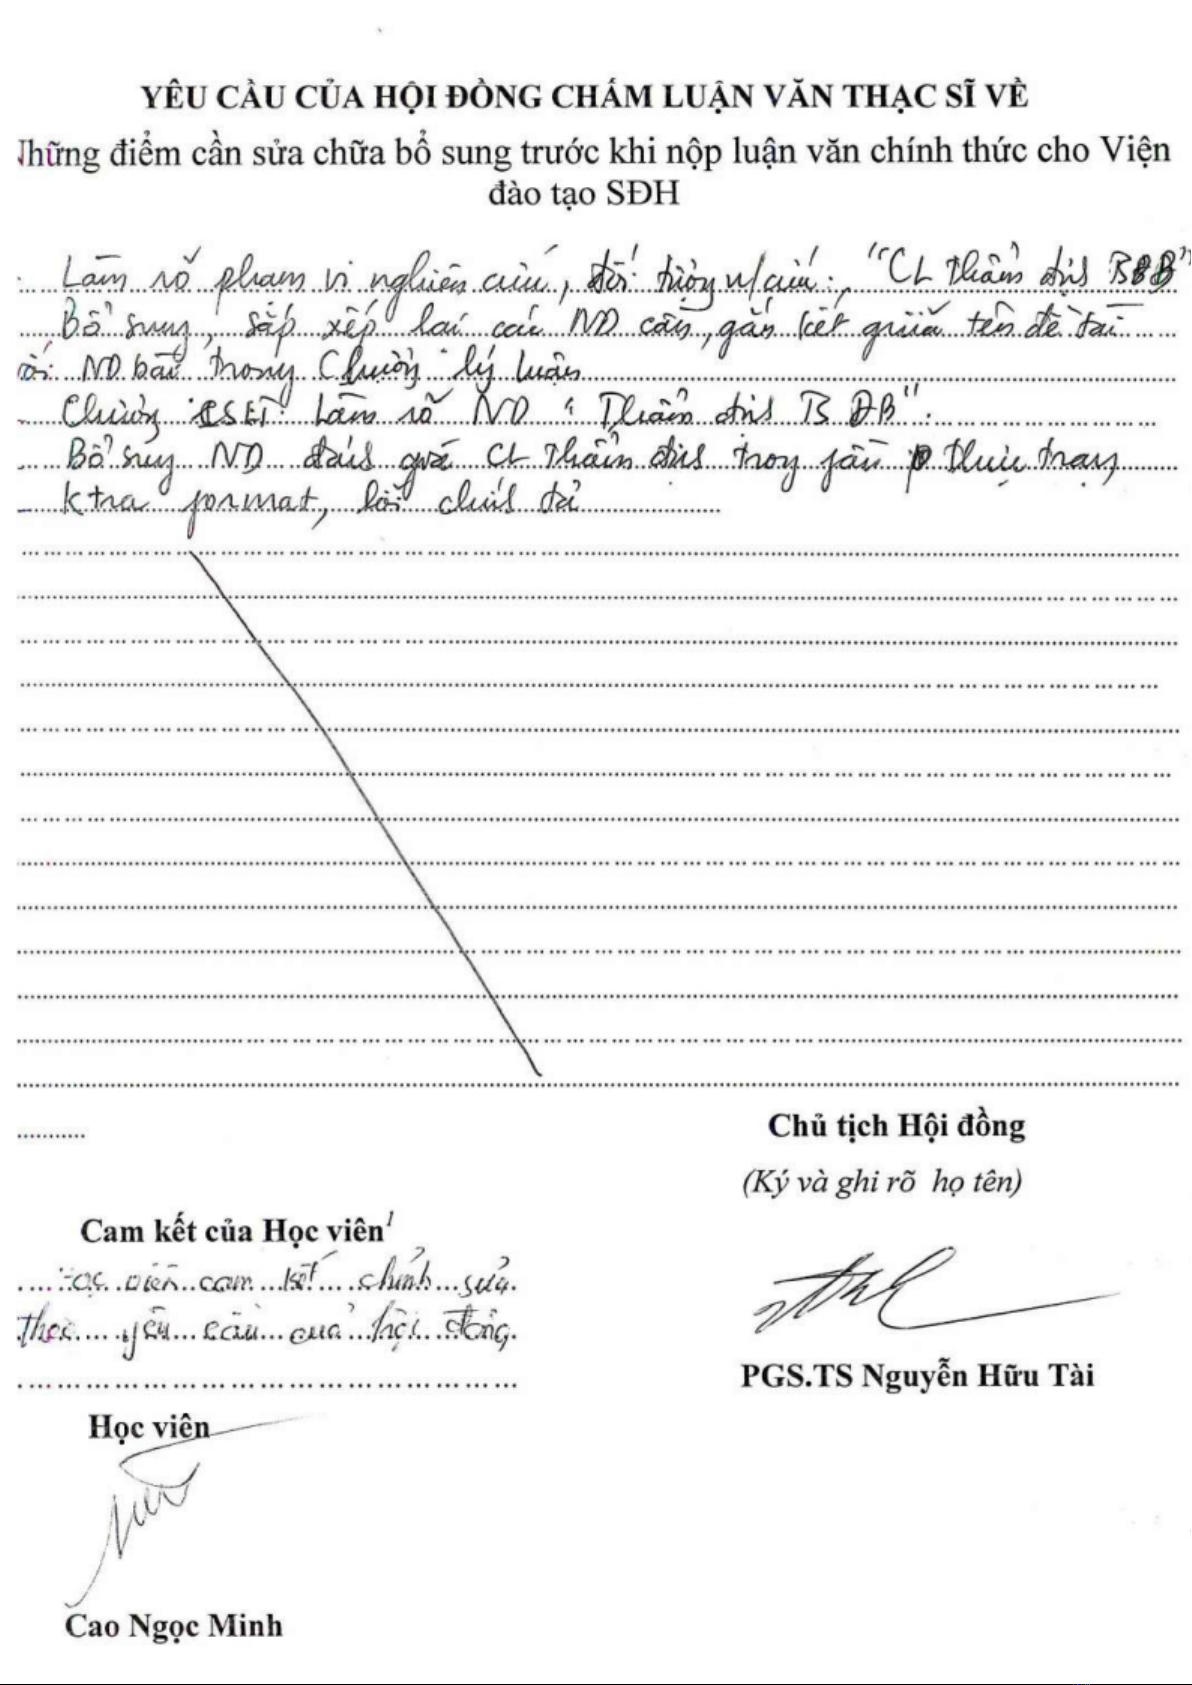 YÊU CẦU CỦA HỘI ĐỒNG CHẤM LUẬN VĂN THẠC SĨ VỀ
Những điểm cần sửa chữa bổ sung trước khi nộp luận văn chính thức cho Viện
đào tạo SĐH
Làm rõ phạm vi nghiên cứu, đối tượng n/cứu: "CL thẩm định
Bổ sung, sắp xếp lại các ND cần, gắn kết giữa tên đề tài
với ND bài trong Chương lý luận
Chương Làm rõ ND "Thẩm định BĐB".
Bổ sung ND đánh giá CL thẩm định trong phần thực trạng
Ktra format, lỗi chính tả
Chủ tịch Hội đồng
(Ký và ghi rõ họ tên)
Cam kết của Học viên1
Học viên cam kết chỉnh sửa
theo yêu cầu của hội đồng
PGS.TS Nguyễn Hữu Tài
Học viên
Cao Ngọc Minh